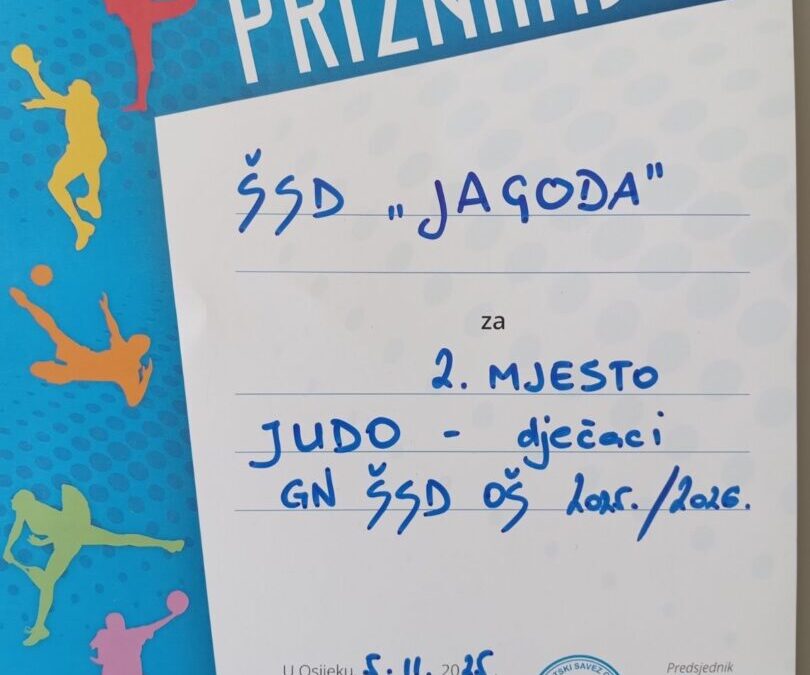 ŠSD „JAGODA"
za
2. MJESTO
JUDO - dječaci
GN ŠSD OŠ 2025./2026.
U Osijeku 5.11. 2025.
Predsjednik